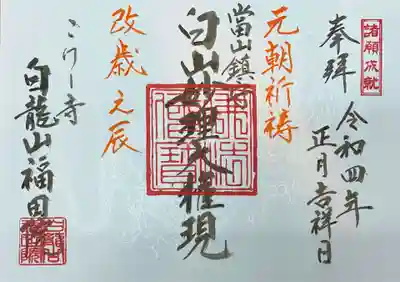 諸願成就
奉拝
令和四年
正月吉祥日
元朝祈祷
當山鎮守
白山妙理大権現
佛法僧寶
改歳之辰
こけし寺
白龍山福田寺